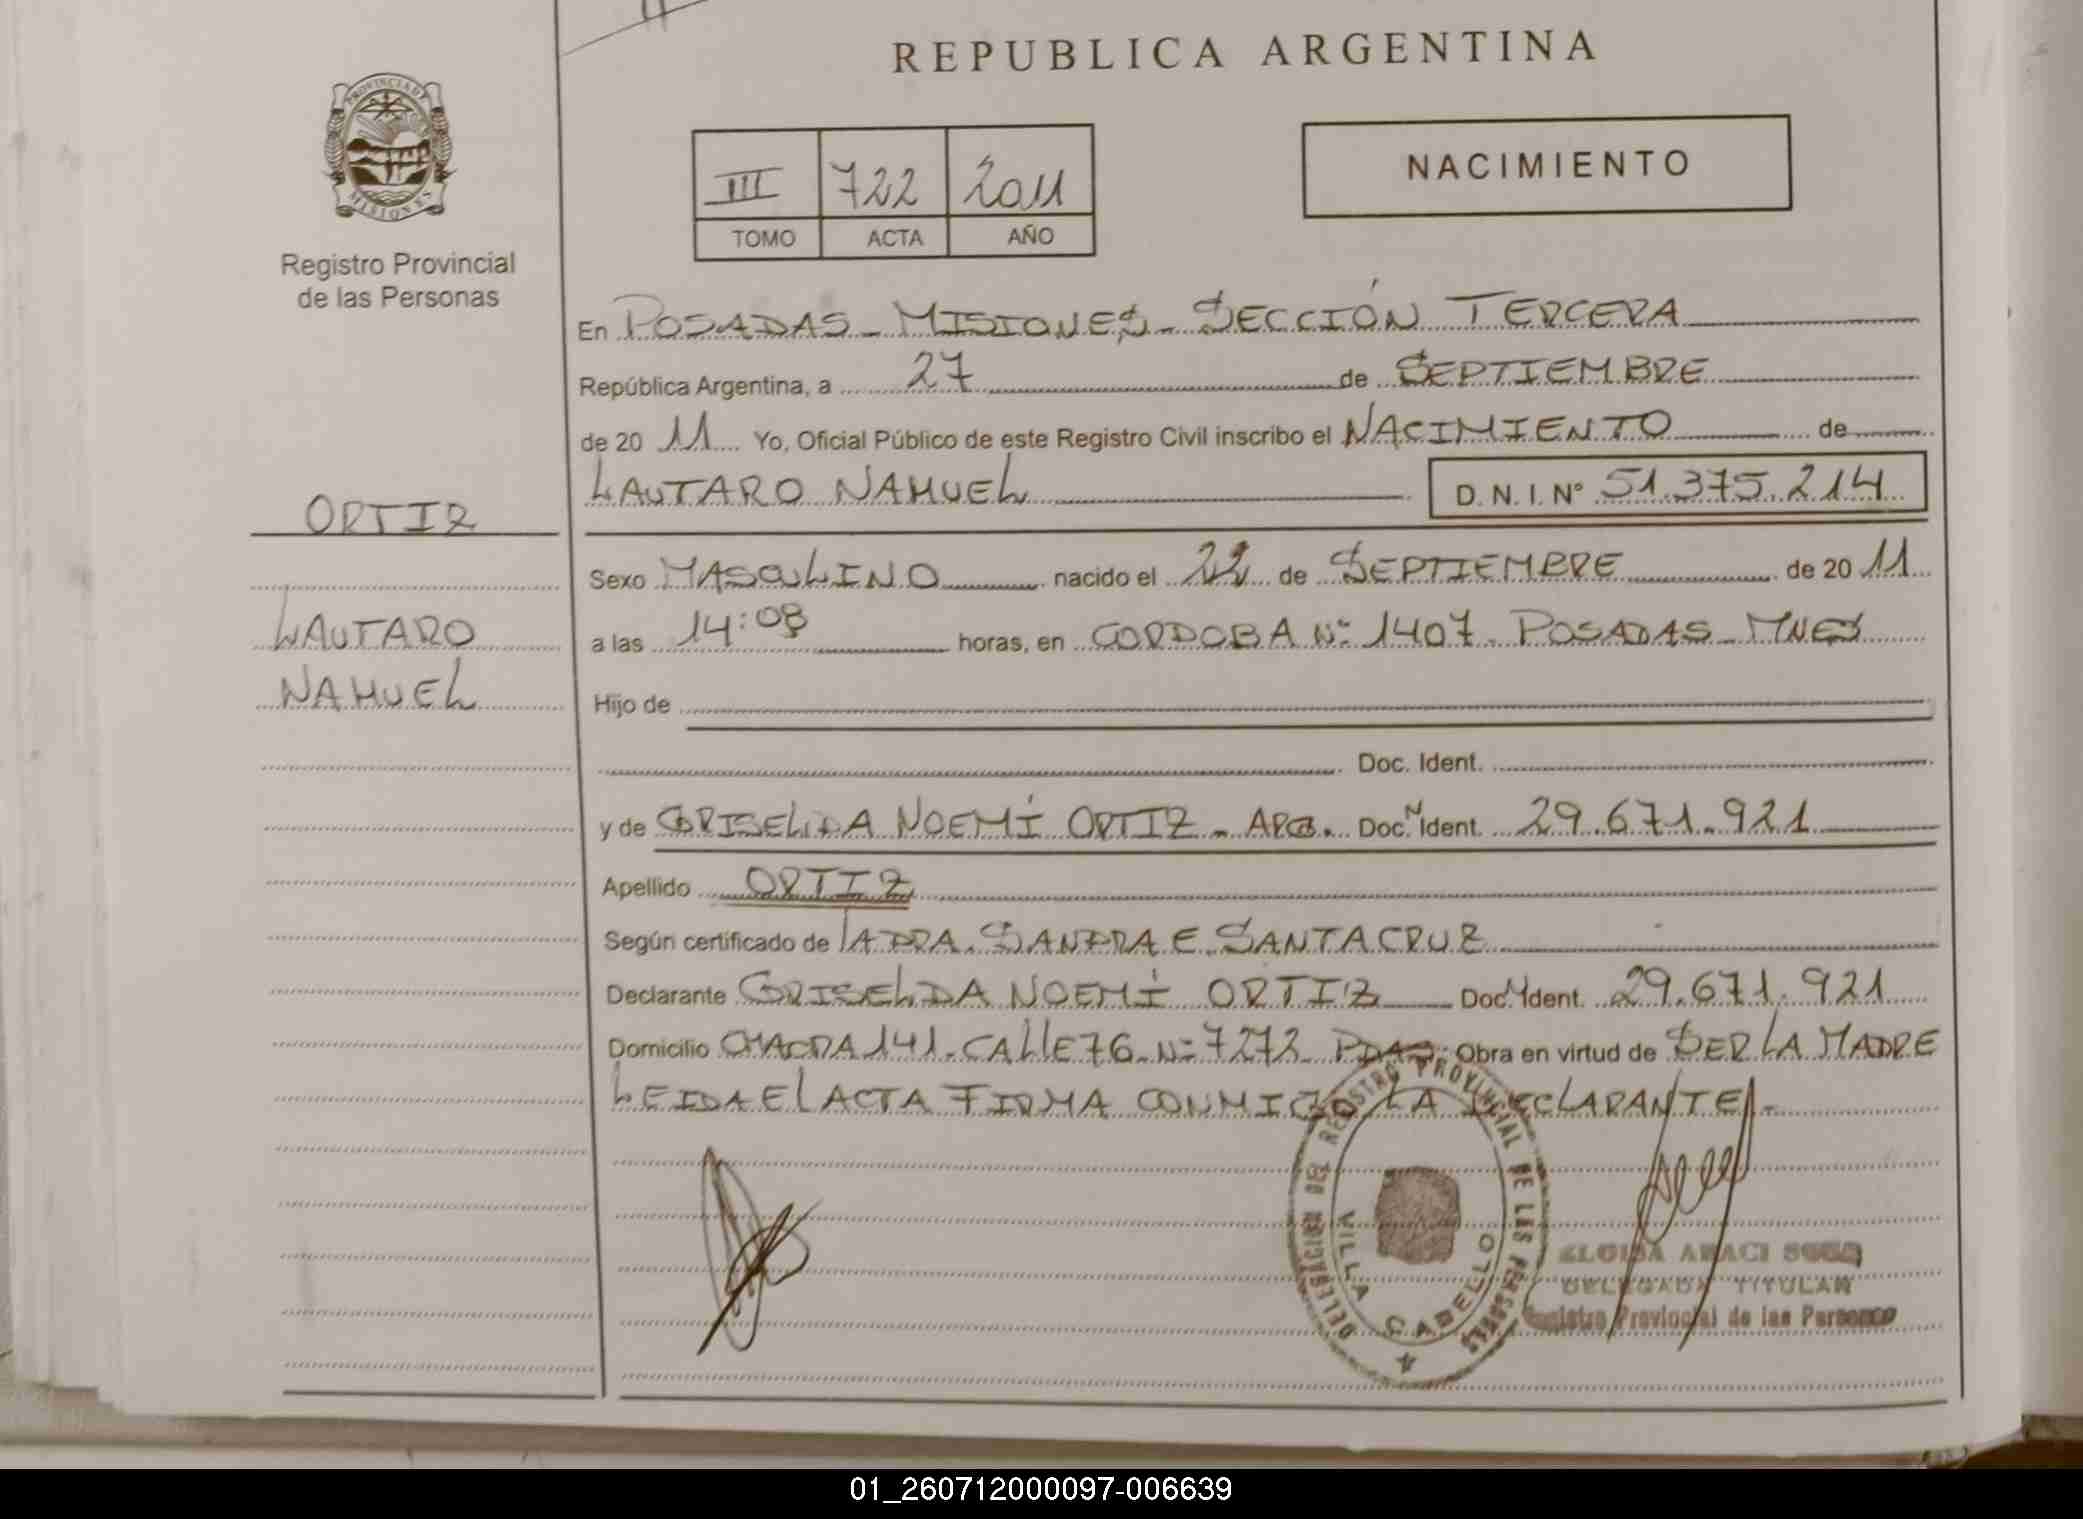 REPUBLICA ARGENTINA
PROVINCIA DE
MISIONES
Registro Provincial
de las Personas
III 722 2011
TOMO ACTA AÑO
NACIMIENTO
En POSADAS - MISIONES - SECCIÓN TERCERA
República Argentina, a 27 de SEPTIEMBRE
de 20 11 Yo, Oficial Público de este Registro Civil inscribo el NACIMIENTO de
LAUTARO NAHUEL D. N. I. N° 51.375.214
ORTIZ
LAUTARO
NAHUEL
Sexo MASCULINO nacido el 22 de SEPTIEMBRE de 20 11
a las 14:08 horas, en CORDOBA Nº 1407. POSADAS - MNES
Hijo de
Doc. Ident.
y de GRISELDA NOEMÍ ORTIZ - ARG. Doc. N Ident. 29.671.921
Apellido ORTIZ
Según certificado de LA DRA. SANDRA E. SANTACRUZ
Declarante GRISELDA NOEMÍ ORTIZ Doc. N Ident. 29.671.921
Domicilio CHACRA 141. CALLE 76 Nº 7272 PDAS. Obra en virtud de SER LA MADRE
LEIDA EL ACTA FIRMA CONMIGO LA DECLARANTE.-
DELEGACION DEL REGISTRO PROVINCIAL DE LAS PERSONAS
VILLA CABELLO
ARACI
DELEGADA TITULAR
Registro Provincial de las Personas
01_260712000097-006639